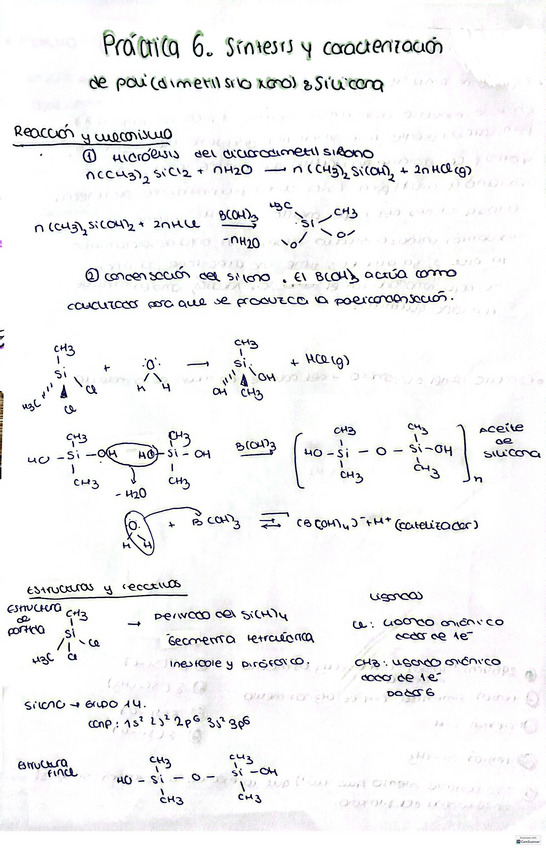 Práctica 6. Síntesis y caracterización
de poli(dimetilsiloxano) & Silicona
Reacción y mecanismo
① Hidrólisis del diclorodimetilsilano
n(CH3)2 SiCl2 + nH2O → n(CH3)2 Si(OH)2 + 2nHCl(g)
n(CH3)2Si(OH)2 + 2nHCl B(OH)3 -nH2O H3C CH3 Si O O
② Condensación del silano. El B(OH)3 actúa como
catalizador para que se produzca la policondensación.
CH3 Si H3C Cl Cl + O H H → CH3 Si OH OH CH3 + HCl(g)
HO - Si - OH HO - Si - OH CH3 CH3 CH3 CH3 B(OH)3 HO - Si - O - Si - OH CH3 CH3 CH3 CH3 n Aceite de silicona
- H2O
O H H + B(OH)3 ⇌ (B(OH)4)- + H+ (catalizador)
Estructuras y reactivos
Estructura de partida
CH3 Si H3C Cl Cl
→ Derivado del Si(H)4
Geometría tetraédrica
Inestable y pirofórico.
Ligandos
Cl: ligando aniónico
dador de 1e-
CH3: ligando aniónico
dador de 1e-
dador σ
Silano → Grupo 14.
1s² 2s² 2p⁶ 3s² 3p⁶
Estructura final
HO - Si - O - Si - OH CH3 CH3 CH3 CH3
CamScanner